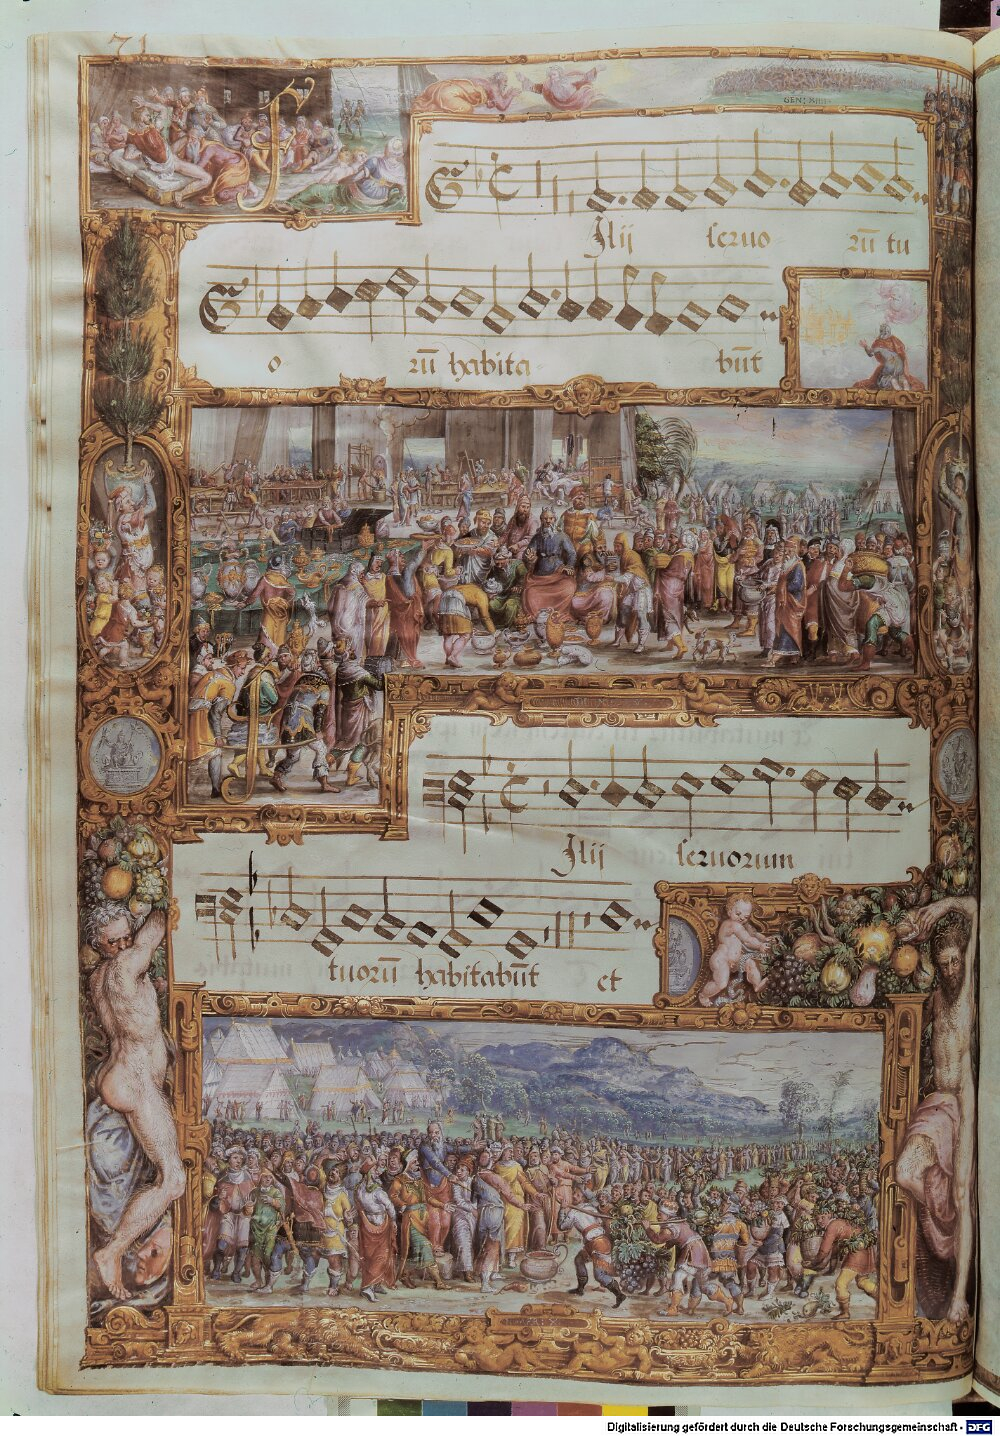 71
GEN: XIIII
Filij seruo rū tu
o rū habita būt
Filij seruorum
tuorū habitabūt et
Digitalisierung gefördert durch die Deutsche Forschungsgemeinschaft - DFG